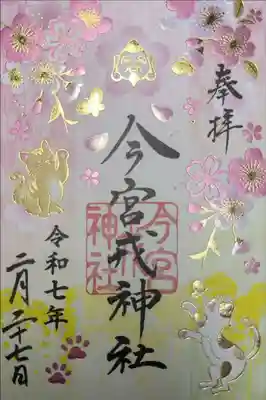 奉拝
今宮戎神社
今宮
神社
令和七年
二月二十七日